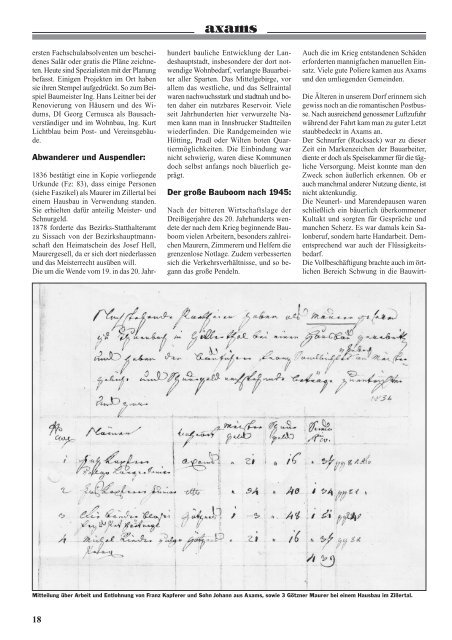 axams
ersten Fachschulabsolventen um beschei-
denes Salär oder gratis die Pläne zeichne-
ten. Heute sind Spezialisten mit der Planung
befasst. Einigen Projekten im Ort haben
sie ihren Stempel aufgedrückt. So zum Bei-
spiel Baumeister Ing. Hans Leitner bei der
Renovierung von Häusern und des Wi-
dums, DI Georg Cernusca als Bausach-
verständiger und im Wohnbau, Ing. Kurt
Lichtblau beim Post- und Vereinsgebäu-
de.
Abwanderer und Auspendler:
1836 bestätigt eine in Kopie vorliegende
Urkunde (Fz: 83), dass einige Personen
(siehe Faszikel) als Maurer im Zillertal bei
einem Hausbau in Verwendung standen.
Sie erhielten dafür anteilig Meister- und
Schnurgeld.
1878 forderte das Bezirks-Statthalteramt
zu Sissach von der Bezirkshauptmann-
schaft den Heimatschein des Josef Hell,
Maurergesell, da er sich dort niederlassen
und das Meisterrecht ausüben will.
Die um die Wende vom 19. in das 20. Jahr-
hundert bauliche Entwicklung der Lan-
deshauptstadt, insbesondere der dort not-
wendige Wohnbedarf, verlangte Bauarbei-
ter aller Sparten. Das Mittelgebirge, vor
allem das westliche, und das Sellraintal
waren nachwuchsstark und stadtnah und bo-
ten daher ein nutzbares Reservoir. Viele
seit Jahrhunderten hier verwurzelte Na-
men kann man in Innsbrucker Stadtteilen
wiederfinden. Die Randgemeinden wie
Hötting, Pradl oder Wilten boten Quar-
tiermöglichkeiten. Die Einbindung war
nicht schwierig, waren diese Kommunen
doch selbst anfangs noch bäuerlich ge-
prägt.
Der große Bauboom nach 1945:
Nach der bitteren Wirtschaftslage der
Dreißigerjahre des 20. Jahrhunderts wen-
dete der nach dem Krieg beginnende Bau-
boom vielen Arbeitern, besonders zahlrei-
chen Maurern, Zimmerern und Helfern die
grenzenlose Notlage. Zudem verbesserten
sich die Verkehrsverhältnisse, und so be-
gann das große Pendeln.
Auch die im Krieg entstandenen Schäden
erforderten mannigfachen manuellen Ein-
satz. Viele gute Poliere kamen aus Axams
und den umliegenden Gemeinden.
Die Älteren in unserem Dorf erinnern sich
gewiss noch an die romantischen Postbus-
se. Nach ausreichend genossener Luftzufuhr
während der Fahrt kam man zu guter Letzt
staubbedeckt in Axams an.
Der Schnurfer (Rucksack) war zu dieser
Zeit ein Markenzeichen der Bauarbeiter,
diente er doch als Speisekammer für die täg-
liche Versorgung. Meist konnte man den
Zweck schon äußerlich erkennen. Ob er
auch manchmal anderer Nutzung diente, ist
nicht aktenkundig.
Die Neunerl- und Marendepausen waren
schließlich ein bäuerlich überkommener
Kultakt und sorgten für Gespräche und
manchen Scherz. Es war damals kein Sa-
lonberuf, sondern harte Handarbeit. Dem-
entsprechend war auch der Flüssigkeits-
bedarf.
Die Vollbeschäftigung brachte auch im ört-
lichen Bereich Schwung in die Bauwirt-
Mitteilung über Arbeit und Entlohnung von Franz Kapferer und Sohn Johann aus Axams, sowie 3 Götzner Maurer bei einem Hausbau im Zillertal.
18